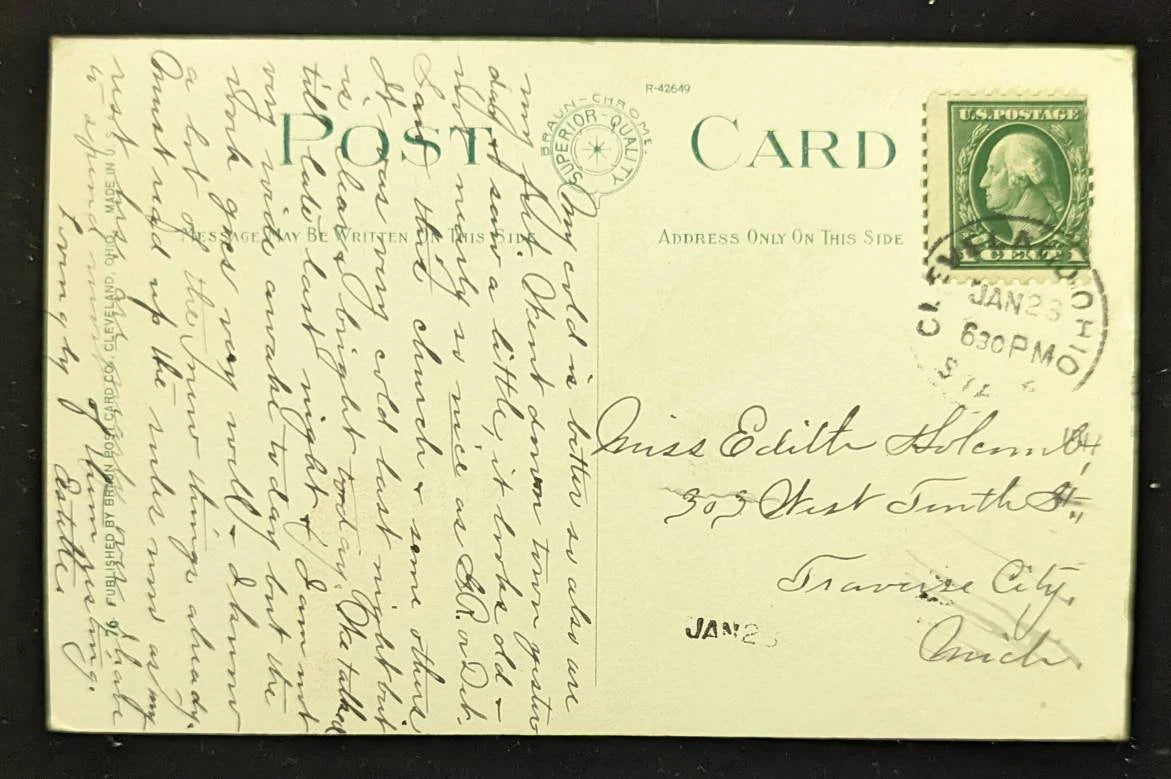 R-42649
POST CARD
BRAUN-CHROME.
SUPERIOR-QUALITY
MESSAGE MAY BE WRITTEN ON THIS SIDE
ADDRESS ONLY ON THIS SIDE
U.S. POSTAGE
1 CENT 1
CLEVELAND, OHIO
JAN 23
630 PM
STA
My cold is better so also are
my feet. Went down town yester
day & saw a little, it looks old &
not nearly so nice as G.R. or Det.
Saw three church & some others
It was very cold last night but
is clear & bright today. We talked
till late last night & I am not
very wide awake today but the
work goes very well & I know
a lot of the new things already.
Must read up the rules now as my
rest hour is and I have
to spend most of them resting.
Lovingly
Estelle
Miss Edith Holcomb,
303 West Tenth St.,
Traverse City,
Mich
JAN 23
76 PUBLISHED BY BRAUN POST CARD CO. CLEVELAND, OHIO. MADE IN U.S.